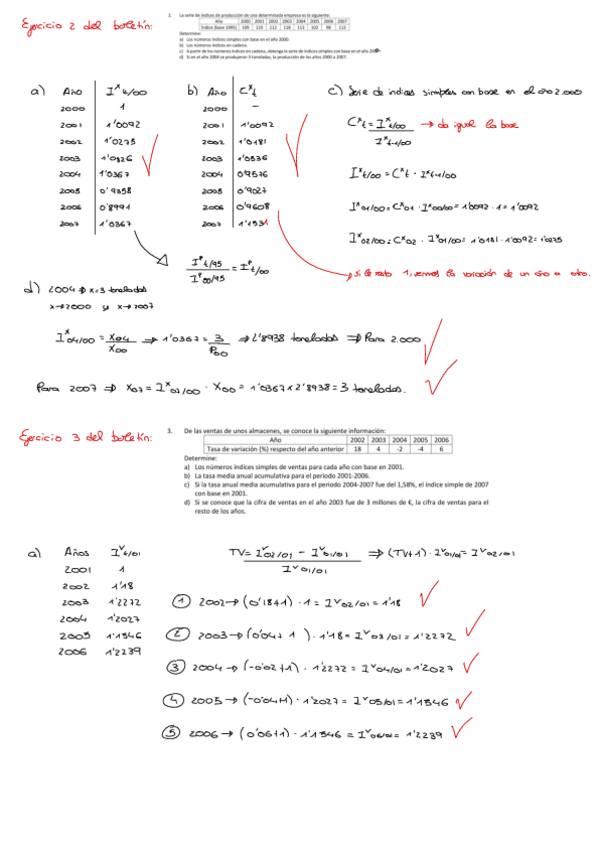 Ejercicio 2 del boletín:
2. La serie de índices de producción de una determinada empresa es la siguiente:
Año 2000 2001 2002 2003 2004 2005 2006 2007
Índice (base 1995) 109 110 112 118 113 102 98 113
Determine:
a) Los números índices simples con base en el año 2000.
b) Los números índices en cadena.
c) A partir de los números índices en cadena, obtenga la serie de índices simples con base en el año 2000.
d) Si en el año 2004 se produjeron 3 toneladas, la producción de los años 2000 a 2007.
a) Año I^x t/00
2000 1
2001 1'0092
2002 1'0275
2003 1'0826
2004 1'0367
2005 0'9358
2006 0'8991
2007 1'0367
b) Año C^x t
2000 -
2001 1'0092
2002 1'0181
2003 1'0536
2004 0'9576
2005 0'9027
2006 0'9608
2007 1'1531
c) Serie de índices simples con base en el año 2.000
C^x t = I^x t/00 / I^x t-1/00 → da igual la base
I^x t/00 = C^x t · I^x t-1/00
I^x 01/00 = C^x 01 · I^x 00/00 = 1'0092 · 1 = 1'0092
I^x 02/00 = C^x 02 · I^x 01/00 = 1'0181 · 1'0092 = 1'0275
I^P t/95 / I^P 00/95 = I^P t/00
→ si le resto 1, vemos la variación de un año a otro.
d) 2004 → x=3 toneladas
x→2000 y x→2007
I^x 04/00 = X04 / X00 ⇒ 1'0367 = 3 / P00 ⇒ 2'8938 toneladas ⇒ Para 2.000
Para 2007 ⇒ X07 = I^x 07/00 · X00 = 1'0367 × 2'8938 = 3 toneladas.
Ejercicio 3 del boletín:
3. De las ventas de unos almacenes, se conoce la siguiente información:
Año 2002 2003 2004 2005 2006
Tasa de variación (%) respecto del año anterior 18 4 -2 -4 6
Determine:
a) Los números índices simples de ventas para cada año con base en 2001.
b) La tasa media anual acumulativa para el periodo 2001-2006.
c) Si la tasa anual media acumulativa para el periodo 2004-2007 fue del 1,58%, el índice simple de 2007
con base en 2001.
d) Si se conoce que la cifra de ventas en el año 2003 fue de 3 millones de €, la cifra de ventas para el
resto de los años.
a) Años I^V t/01
2001 1
2002 1'18
2003 1'2272
2004 1'2027
2005 1'1546
2006 1'2239
TV = I^V 02/01 - I^V 01/01 / I^V 01/01 ⇒ (TV+1) · I^V 01/01 = I^V 02/01
① 2002 → (0'18+1) · 1 = I^V 02/01 = 1'18
② 2003 → (0'04+1) · 1'18 = I^V 03/01 = 1'2272
③ 2004 → (-0'02+1) · 1'2272 = I^V 04/01 = 1'2027
④ 2005 → (-0'04+1) · 1'2027 = I^V 05/01 = 1'1546
⑤ 2006 → (0'06+1) · 1'1546 = I^V 06/01 = 1'2239